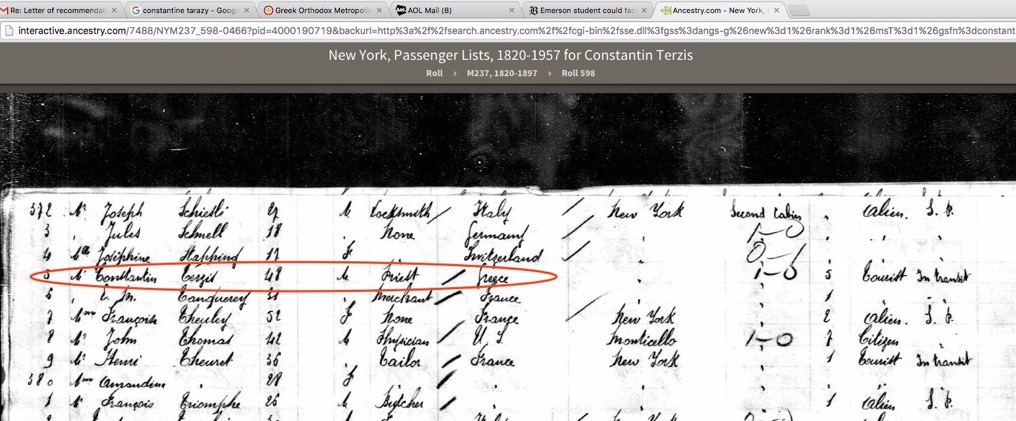 Re: Letter of recommendat
constantine tarazy - Goog
Greek Orthodox Metropolit
AOL Mail (8)
Emerson student could fac
Ancestry.com - New York,
interactive.ancestry.com/7488/NYM237_598-0466?pid=4000190719&backurl=http%3a%2f%2fsearch.ancestry.com%2f%2fcgi-bin%2fsse.dll%3fgss%3dangs-g%26new%3d1%26rank%3d1%26msT%3d1%26gsfn%3dconstant
New York, Passenger Lists, 1820-1957 for Constantin Terzis
Roll > M237, 1820-1897 > Roll 598
372 Mr Joseph Schiesli 27 M Locksmith Italy New York Second Cabin Alien
3 Jules Schnell 18 None Germany
4 Josephine 17 F Switzerland
5 Mr Constantin Terzis 48 M Priest Grece 5 Tourist In transit
6 Tanquerey 31 Merchant France 1
7 Mme François 52 F None France New York 2 Alien
8 Mr John Thomas 42 M Physician U.S. Monticello 7 Citizen
9 Mr Henri Theuret 36 Tailor France New York 1 Tourist In transit
380 Mme Amandine 28 F
1 Mr François Triomphe 26 M Butcher 1 Alien